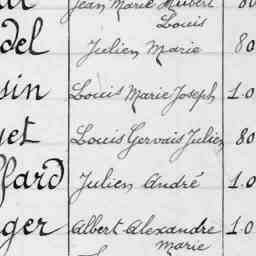 Jean Marie Hubert 80
Louis
del Julien Marie 80
sin Louis Marie Joseph 1.0
uet Louis Gervais Julien 80
ffard Julien André 1.0
ger Albert Alexandre 1.0
Marie